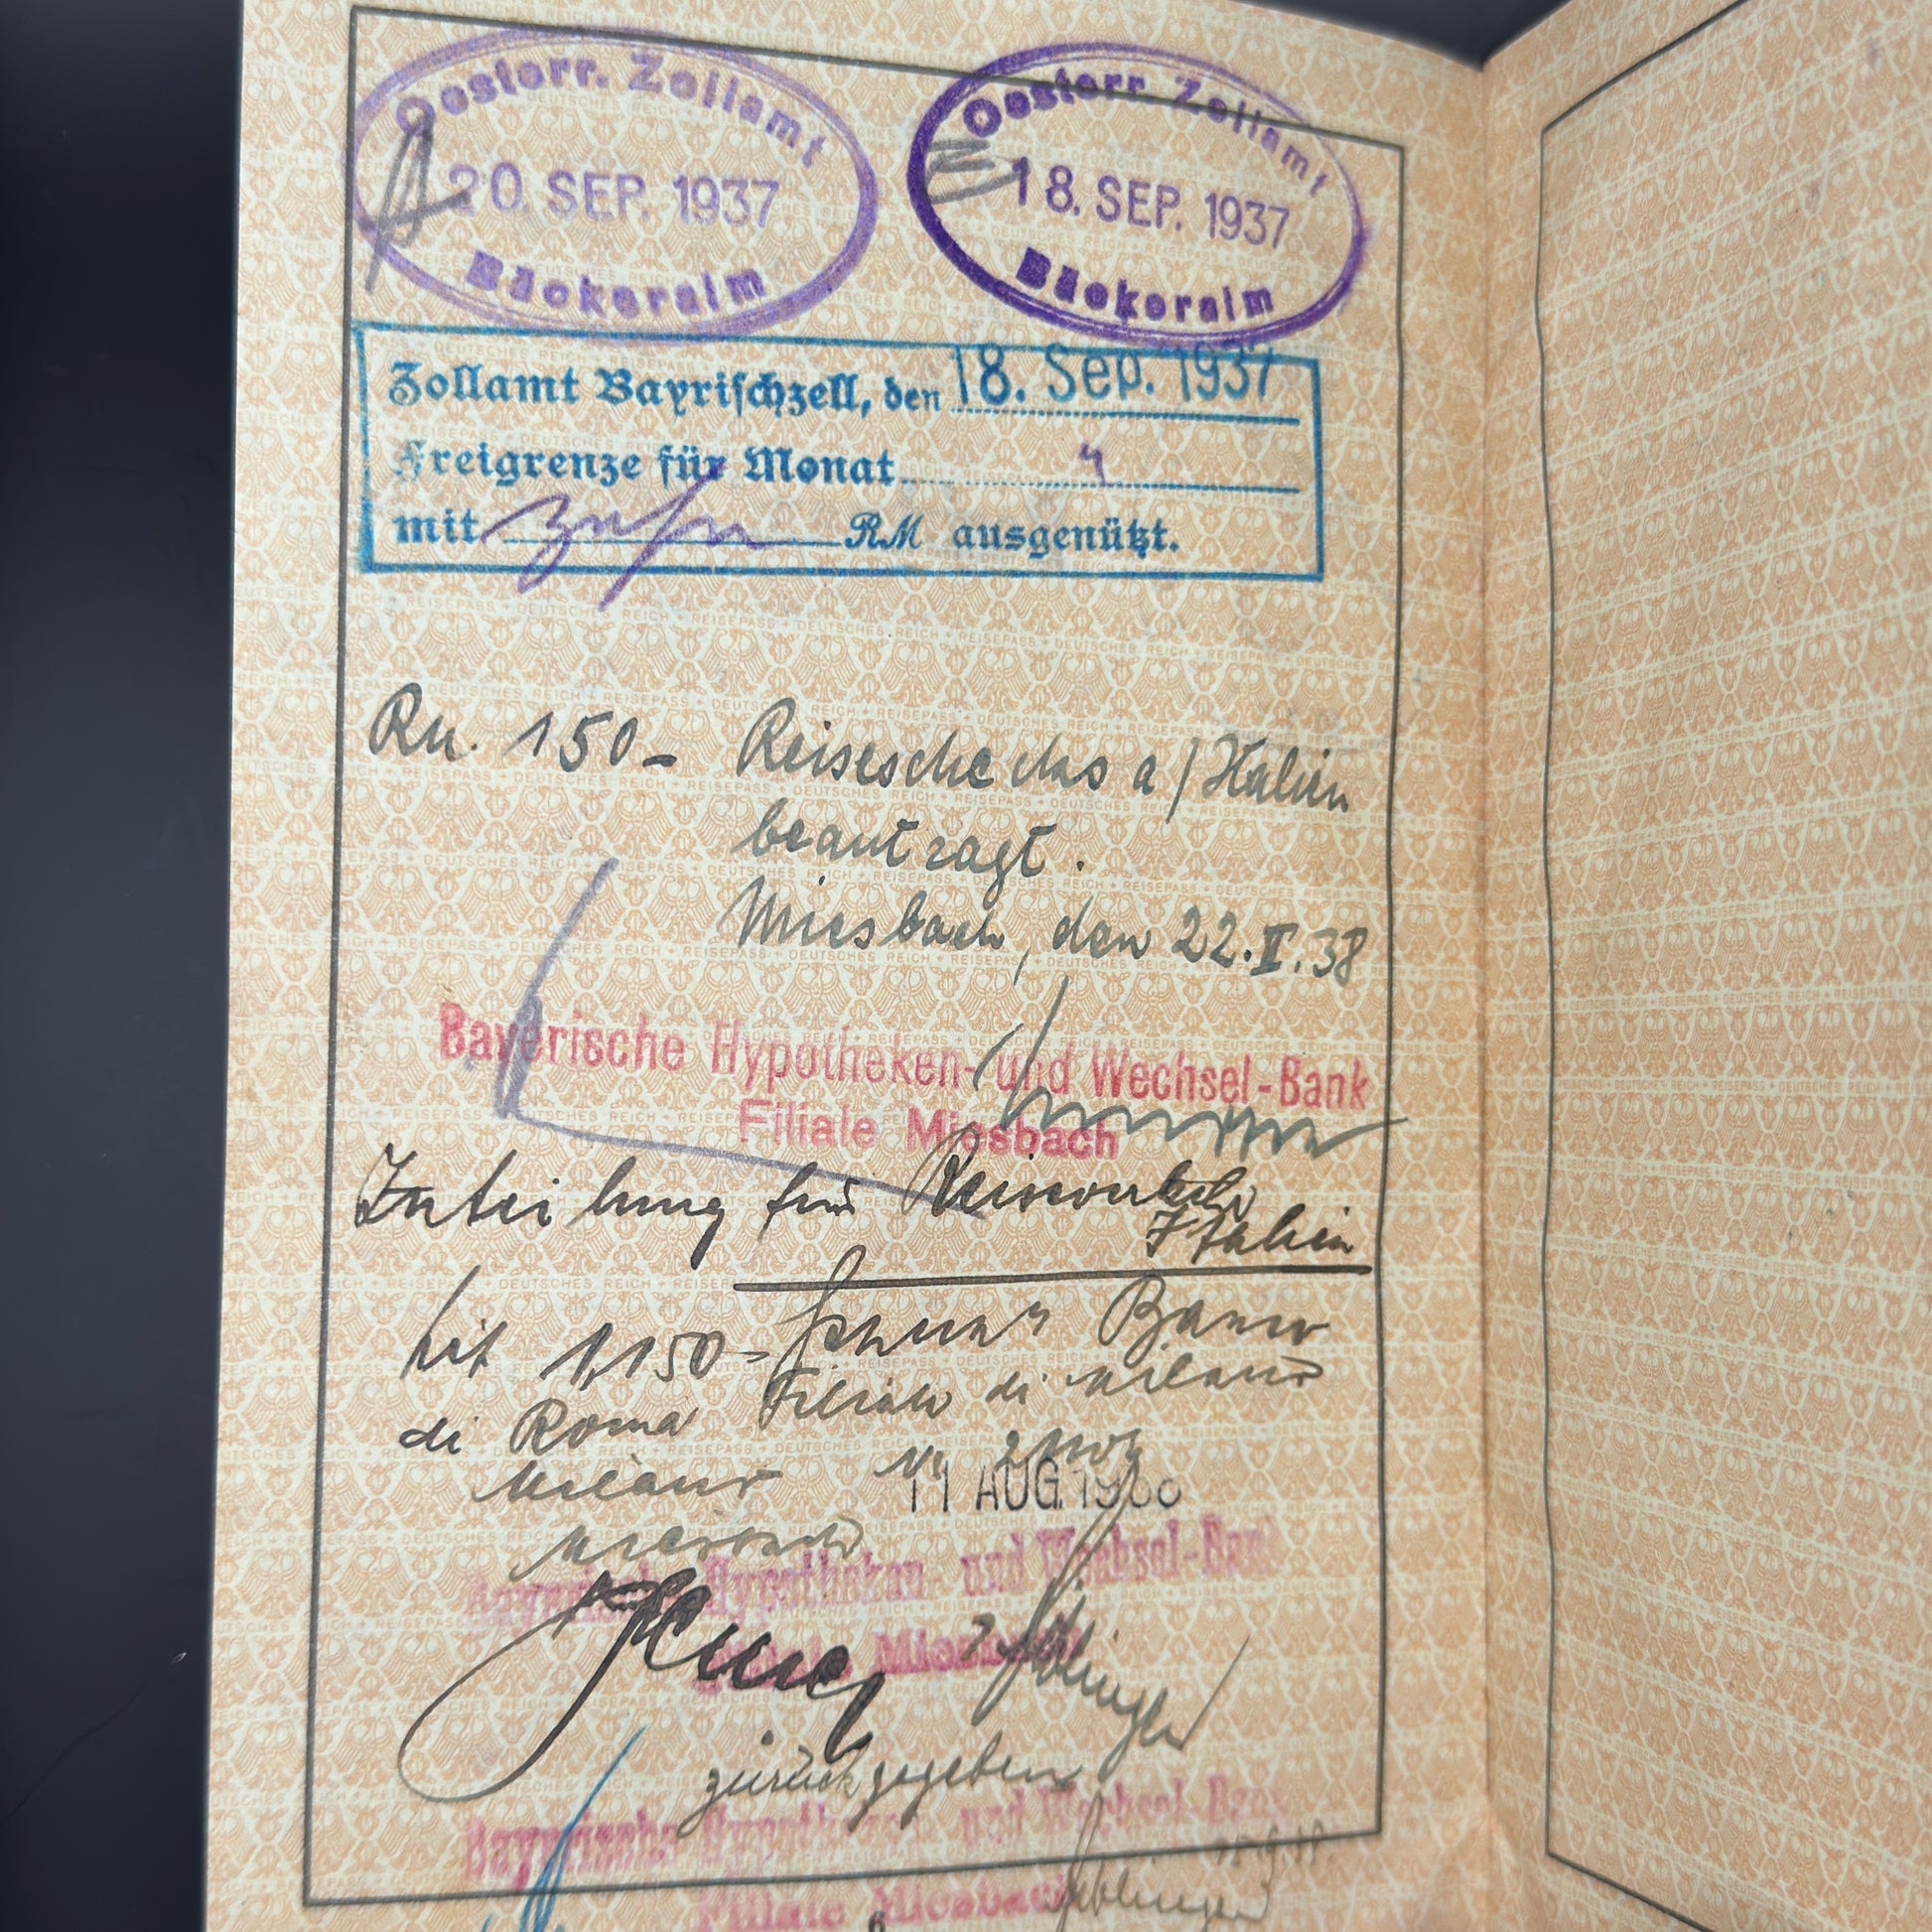 Oesterr. Zollamt
20. SEP. 1937
Bäckeralm
Oesterr. Zollamt
18. SEP. 1937
Bäckeralm
Zollamt Bayrischzell, den 18. Sep. 1937
Freigrenze für Monat 9
mit zehn RM ausgenützt.
Rm. 150- Reiseschecks a/Italien
beantragt.
Miesbach, den 22.II.38
Bayerische Hypotheken- und Wechsel-Bank
Filiale Miesbach
Zuteilung für Reiseverkehr
Italien
Lit 1150- Banco
di Roma Filiale di Milano
Milano Nr.
11 AUG. 1938
Miesbach
Bayerische Hypotheken- und Wechsel-Bank
Filiale Miesbach
zurückgegeben
Bayerische Hypotheken- und Wechsel-Bank
Filiale Miesbach
6